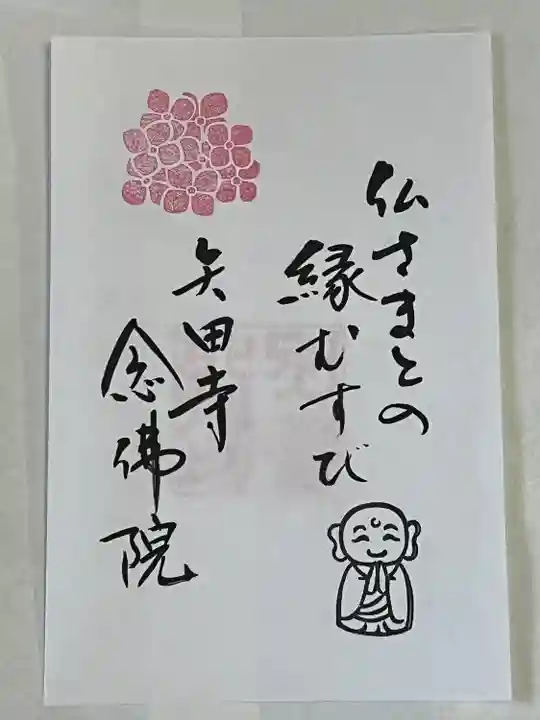 仏さまとの
縁むすび
矢田寺
念佛院